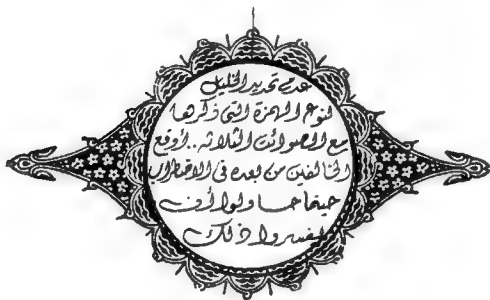 عدم تحديد الخليل
لنوع الهمزة التى ذكرها
مع الصوائت الثلاثه .. أوقع
الخالفين من بعده فى الاضطراب
حينما حاولوا أن
يفسروا ذلك